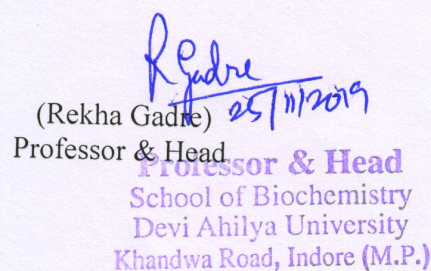 R Gadre
25/11/2019
(Rekha Gadre)
Professor & Head
Professor & Head
School of Biochemistry
Devi Ahilya University
Khandwa Road, Indore (M.P.)